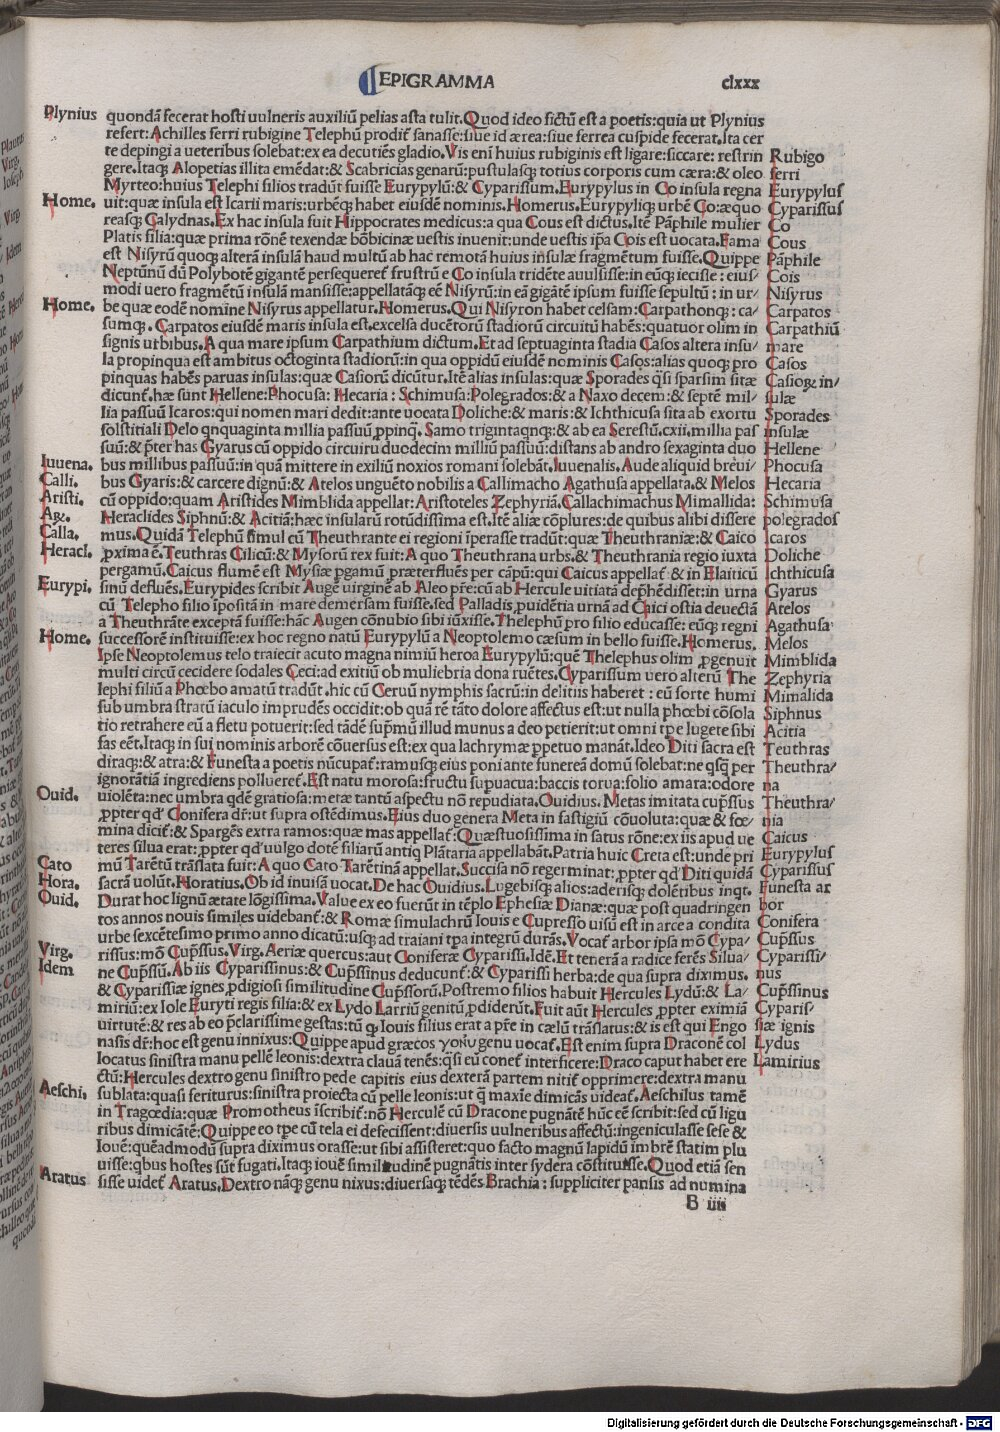 EPIGRAMMA clxxx
Plynius
quondā fecerat hosti uulneris auxiliū pelias asta tulit. Quod ideo fictū est a poetis: quia ut Plynius
refert: Achilles ferri rubigine Telephū prodit̄ sanasse: siue id ærea: siue ferrea cuspide fecerat. Ita cer
te depingi a ueteribus solebat: ex ea decutiēs gladio. Vis enī huius rubiginis est ligare: siccare: restrin
gere. Itaqꝫ Alopetias illita emēdat: & Scabricias genarū: pustulasqꝫ totius corporis cum cæra: & oleo
Myrteo: huius Telephi filios tradūt fuisse Eurypylū: & Cyparissum. Eurypylus in Co insula regna
Home.
uit: quæ insula est Icarii maris: urbēqꝫ habet eiusdē nominis. Homerus. Eurypyliqꝫ urbē Co: æquo
reasqꝫ Calydnas. Ex hac insula fuit Hippocrates medicus: a qua Cous est dictus. Itē Pāphile mulier
Platis filia: quæ prima rōnē texendæ bōbicinæ uestis inuenit: unde uestis ip̄a Cois est uocata. Fama
est Nisyrū quoqꝫ alterā insulā haud multū ab hac remotā huius insulæ fragmētum fuisse. Quippe
Neptūnū dū Polybotē gigantē persequeret̄ frustrū e Co insula tridēte auulsisse: in eūqꝫ iecisse: eius⸗
modi uero fragmētū insulā mansisse: appellatāqꝫ eē Nisyrū: in ea gigātē ipsum fuisse sepultū: in ur⸗
Home.
be quæ eodē nomine Nisyrus appellatur. Homerus. Qui Nisyron habet celsam: Carpathonqꝫ: ca⸗
sumqꝫ. Carpatos eiusdē maris insula est. excelsa ducētorū stadiorū circuitū habēs: quatuor olim in
signis urbibus. A qua mare ipsum Carpathium dictum. Et ad septuaginta stadia Casos altera insu⸗
la propinqua est ambitus octoginta stadiorū: in qua oppidū eiusdē nominis Casos: alias quoqꝫ pro
pinquas habēs paruas insulas: quæ Casiorū dicūtur. Itē alias insulas: quæ Sporades q̄si sparsim sitæ
dicunt̄. hæ sunt Hellene: Phocusa: Hecaria: Schimusa: Polegrados: & a Naxo decem: & septē mil⸗
lia passuū Icaros: qui nomen mari dedit: ante uocata Doliche: & maris: & Ichthicusa sita ab exortu
solstitiali Delo qnquaginta millia passuū ꝓpinqꝫ. Samo trigintaqnqꝫ: & ab ea Serestū. cxii. millia pas
suū: & p̄ter has Gyarus cū oppido circuiru duodecim milliū passuū: distans ab andro sexaginta duo
Iuuena.
bus millibus passuū: in quā mittere in exiliū noxios romani solebāt. Iuuenalis. Aude aliquid breui⸗
Calli.
bus Gyaris: & carcere dignū: & Atelos unguēto nobilis a Callimacho Agathusa appellata. & Melos
Aristi.
cū oppido: quam Aristides Mimblida appellat: Aristoteles Zephyriā. Callachimachus Mimallida:
Aꝝ.
Heraclides Siphnū: & Acitiā: hæc insularū rotūdissima est. Itē aliæ cōplures: de quibus alibi dissere
Calla.
mus. Quidā Telephū simul cū Theuthrante ei regioni īperasse tradūt: quæ Theuthraniæ: & Caico
Heracl.
ꝓxima ē. Teuthras Cilicū: & Mysorū rex fuit: A quo Theuthrana urbs. & Theuthrania regio iuxta
pergamū. Caicus flumē est Mysiæ ꝑgamū præterfluēs per cāpū: qui Caicus appellat̄ & in Elaiticū
Eurypi.
sinū defluēs. Eurypides scribit Augē uirginē ab Aleo pr̄e: cū ab Hercule uitiata dep̄hēdisset: in urna
cū Telepho filio īpositā in mare demersam fuisse. sed Palladis ꝓuidētia urnā ad Caici ostia deuectā
a Theuthrāte exceptā fuisse: hāc Augen cōnubio sibi iūxisse. Thelephū pro filio educasse: eūqꝫ regni
Home.
successorē instituisse: ex hoc regno natū Eurypylū a Neoptolemo cæsum in bello fuisse. Homerus.
Ipse Neoptolemus telo traiecit acuto magna nimiū heroa Eurypylū: quē Thelephus olim ꝓgenuit
multi circū cecidere sodales Ceci: ad exitiū ob muliebria dona ruētes. Cyparissum uero alterū The
lephi filiū a Phœbo amatū tradūt. hic cū Ceruū nymphis sacrū: in delitiis haberet: eū forte humi
sub umbra stratū iaculo imprudēs occidit: ob quā rē tāto dolore affectus est: ut nulla phœbi cōsola
tio retrahere eū a fletu potuerit: sed tādē sup̄mū illud munus a deo petierit: ut omni tp̄e lugete sibi
fas eēt. Itaqꝫ in sui nominis arborē cōuersus est: ex qua lachrymæ ꝑpetuo manāt. Ideo Diti sacra est
diraqꝫ: & atra: & Funesta a poetis nūcupat̄: ramusqꝫ eius poni ante funereā domū solebat: ne qsqꝫ per
ignorātiā ingrediens pollueret̄. Est natu morosa: fructu supuacua: baccis torua: folio amara: odore
Ouid.
uiolēta: nec umbra qdē gratiosa: metæ tantū aspectu nō repudiata. Ouidius. Metas imitata cup̄ssus
ꝓpter qd' Conifera dr̄: ut supra ostēdimus. Eius duo genera Meta in fastigiū cōuoluta: quæ & fœ⸗
mina dicit̄: & Spargēs extra ramos: quæ mas appellat̄. Quæstuosissima in satus rōne: ex iis apud ue
teres silua erat: ꝓpter qd' uulgo dotē filiarū antiq Plātaria appellabāt. Patria huic Creta est: unde pri
Cato
mū Tarētū trāslata fuit: A quo Cato Tarētinā appellat. Succisa nō regerminat: ꝓpter qd' Diti quidā
Hora.
sacrā uolūt. Horatius. Ob id inuisā uocat. De hac Ouidius. Lugebisqꝫ alios: aderisqꝫ dolētibus inqt.
Ouid.
Durat hoc lignū ætate lōgissima. Valuæ ex eo fuerūt in tēplo Ephesiæ Dianæ: quæ post quadringen
tos annos nouis similes uidebant̄: & Romæ simulachrū Iouis e Cupresso uisū est in arce a condita
urbe sexcētesimo primo anno dicatū: usqꝫ ad traiani tp̄a integrū durās. Vocat̄ arbor ipsa mō Cypa⸗
Virg.
rissus: mō Cup̄ssus. Virg. Aeriæ quercus: aut Coniferæ Cyparissi. Idē. Et tenerā a radice ferēs Silua⸗
Idem
ne Cup̄ssū. Ab iis Cyparissinus: & Cup̄ssinus deducunt̄: & Cyparissi herba: de qua supra diximus.
& Cyparissiæ ignes ꝓdigiosi similitudine Cup̄ssorū. Postremo filios habuit Hercules Lydū: & La⸗
miriū: ex Iole Euryti regis filia: & ex Lydo Larriū genitū ꝓdiderūt. Fuit aūt Hercules ꝓpter eximiā
uirtutē: & res ab eo p̄clarissime gestas: tū qꝫ Iouis filius erat a pr̄e in cælū trāslatus: & is est qui Engo
nasis dr̄: hoc est genu innixus: Quippe apud græcos γονυ genu uocat̄. Est enim supra Draconē col
locatus sinistra manu pellē leonis: dextra clauā tenēs: qsi eū conet̄ interficere: Draco caput habet ere
ctū: Hercules dextro genu sinistro pede capitis eius dexterā partem nitit̄ opprimere: dextra manu
Aeschi.
sublata: quasi feriturus: sinistra proiecta cū pelle leonis: ut q̄ maxīe dimicās uideat̄. Aeschilus tamē
in Tragœdia: quæ Promotheus īscribit̄: nō Herculē cū Dracone pugnātē hūc eē scribit: sed cū ligu
ribus dimicātē: Quippe eo tp̄e cū tela ei defecissent: diuersis uulneribus affectū: ingeniculasse sese &
Iouē: quēadmodū supra diximus orasse: ut sibi assisteret: quo facto magnū lapidū imbrē statim plu
uisse: qbus hostes sūt fugati. Itaqꝫ iouē similitudinē pugnātis inter sydera cōstituisse. Quod etiā sen
Aratus
sisse uidet̄ Aratus. Dextro nāqꝫ genu nixus: diuersaqꝫ tēdēs Brachia: suppliciter pansis ad numina
B iiii
Rubigo
ferri
Eurypylus
Cyparissus
Co
Cous
Pāphile
Cois
Nisyrus
Carpatos
Carpathiū
mare
Casos
Casioꝝ in⸗
sulæ
Sporades
insulæ
Hellene
Phocusa
Hecaria
Schimusa
polegrados
Icaros
Doliche
Ichthicusa
Gyarus
Atelos
Agathusa
Melos
Mimblida
Zephyria
Mimalida
Siphnus
Acitia
Teuthras
Theuthra⸗
na
Theuthra⸗
nia
Caicus
Eurypylus
Cyparissus
Funesta ar
bor
Conifera
Cup̄ssus
Cyparissi⸗
nus
Cup̄ssinus
Cyparis⸗
siæ ignis
Lydus
Lamirius
Digitalisierung gefördert durch die Deutsche Forschungsgemeinschaft - DFG